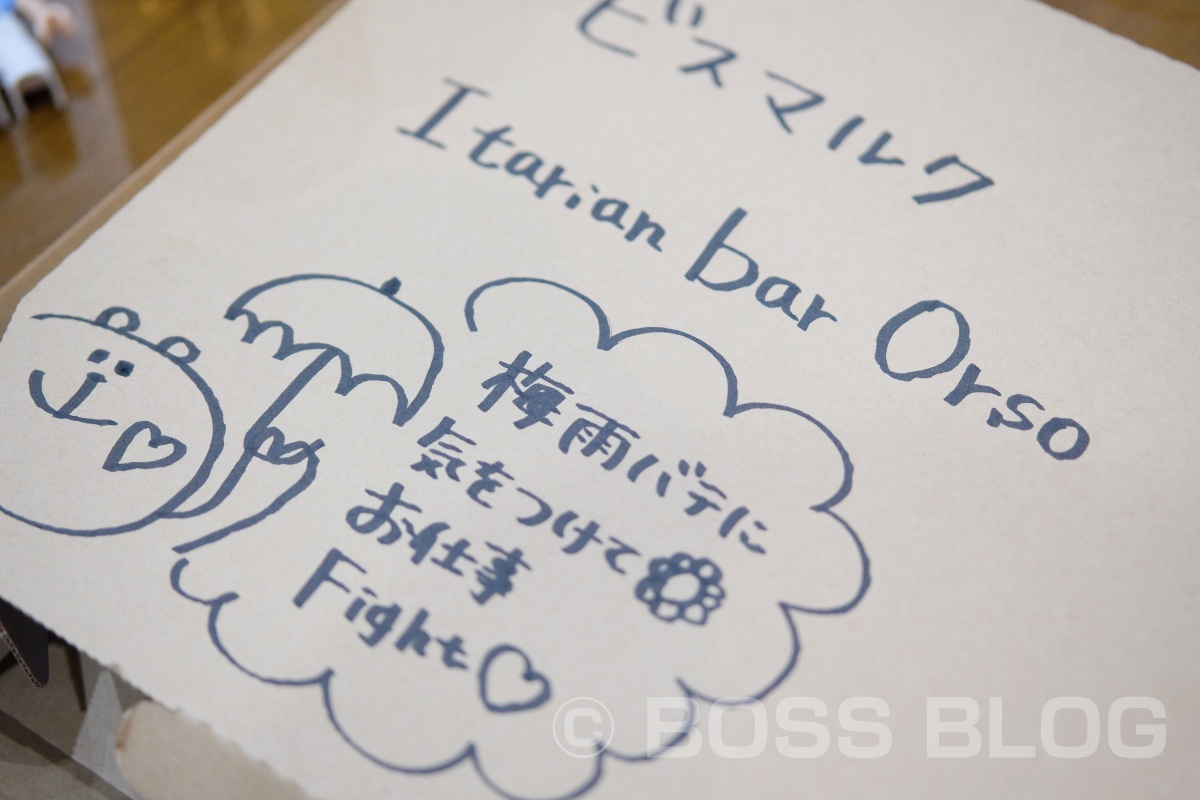 ビスマルク
Itarian bar Orso
梅雨バテに
気をつけて
お仕事
Fight♡
© BOSS BLOG